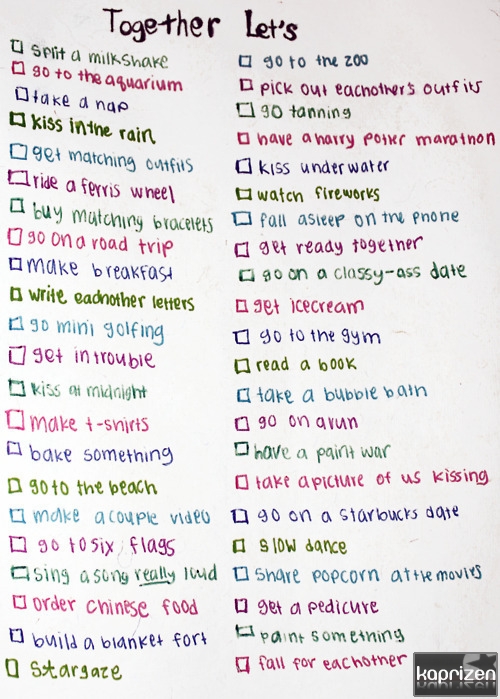 Together Let's
split a milkshake
go to the aquarium
take a nap
kiss in the rain
get matching outfits
ride a ferris wheel
buy matching bracelets
go on a road trip
make breakfast
write eachother letters
go mini golfing
get in trouble
kiss at midnight
make t-shirts
bake something
go to the beach
make a couple video
go to six flags
sing a song really loud
order chinese food
build a blanket fort
stargaze
go to the zoo
pick out eachother's outfits
go tanning
have a harry potter marathon
kiss underwater
watch fireworks
fall asleep on the phone
get ready together
go on a classy-ass date
get icecream
go to the gym
read a book
take a bubble bath
go on a run
have a paint war
take a picture of us kissing
go on a starbucks date
slow dance
share popcorn at the movies
get a pedicure
paint something
fall for eachother
kaprizen